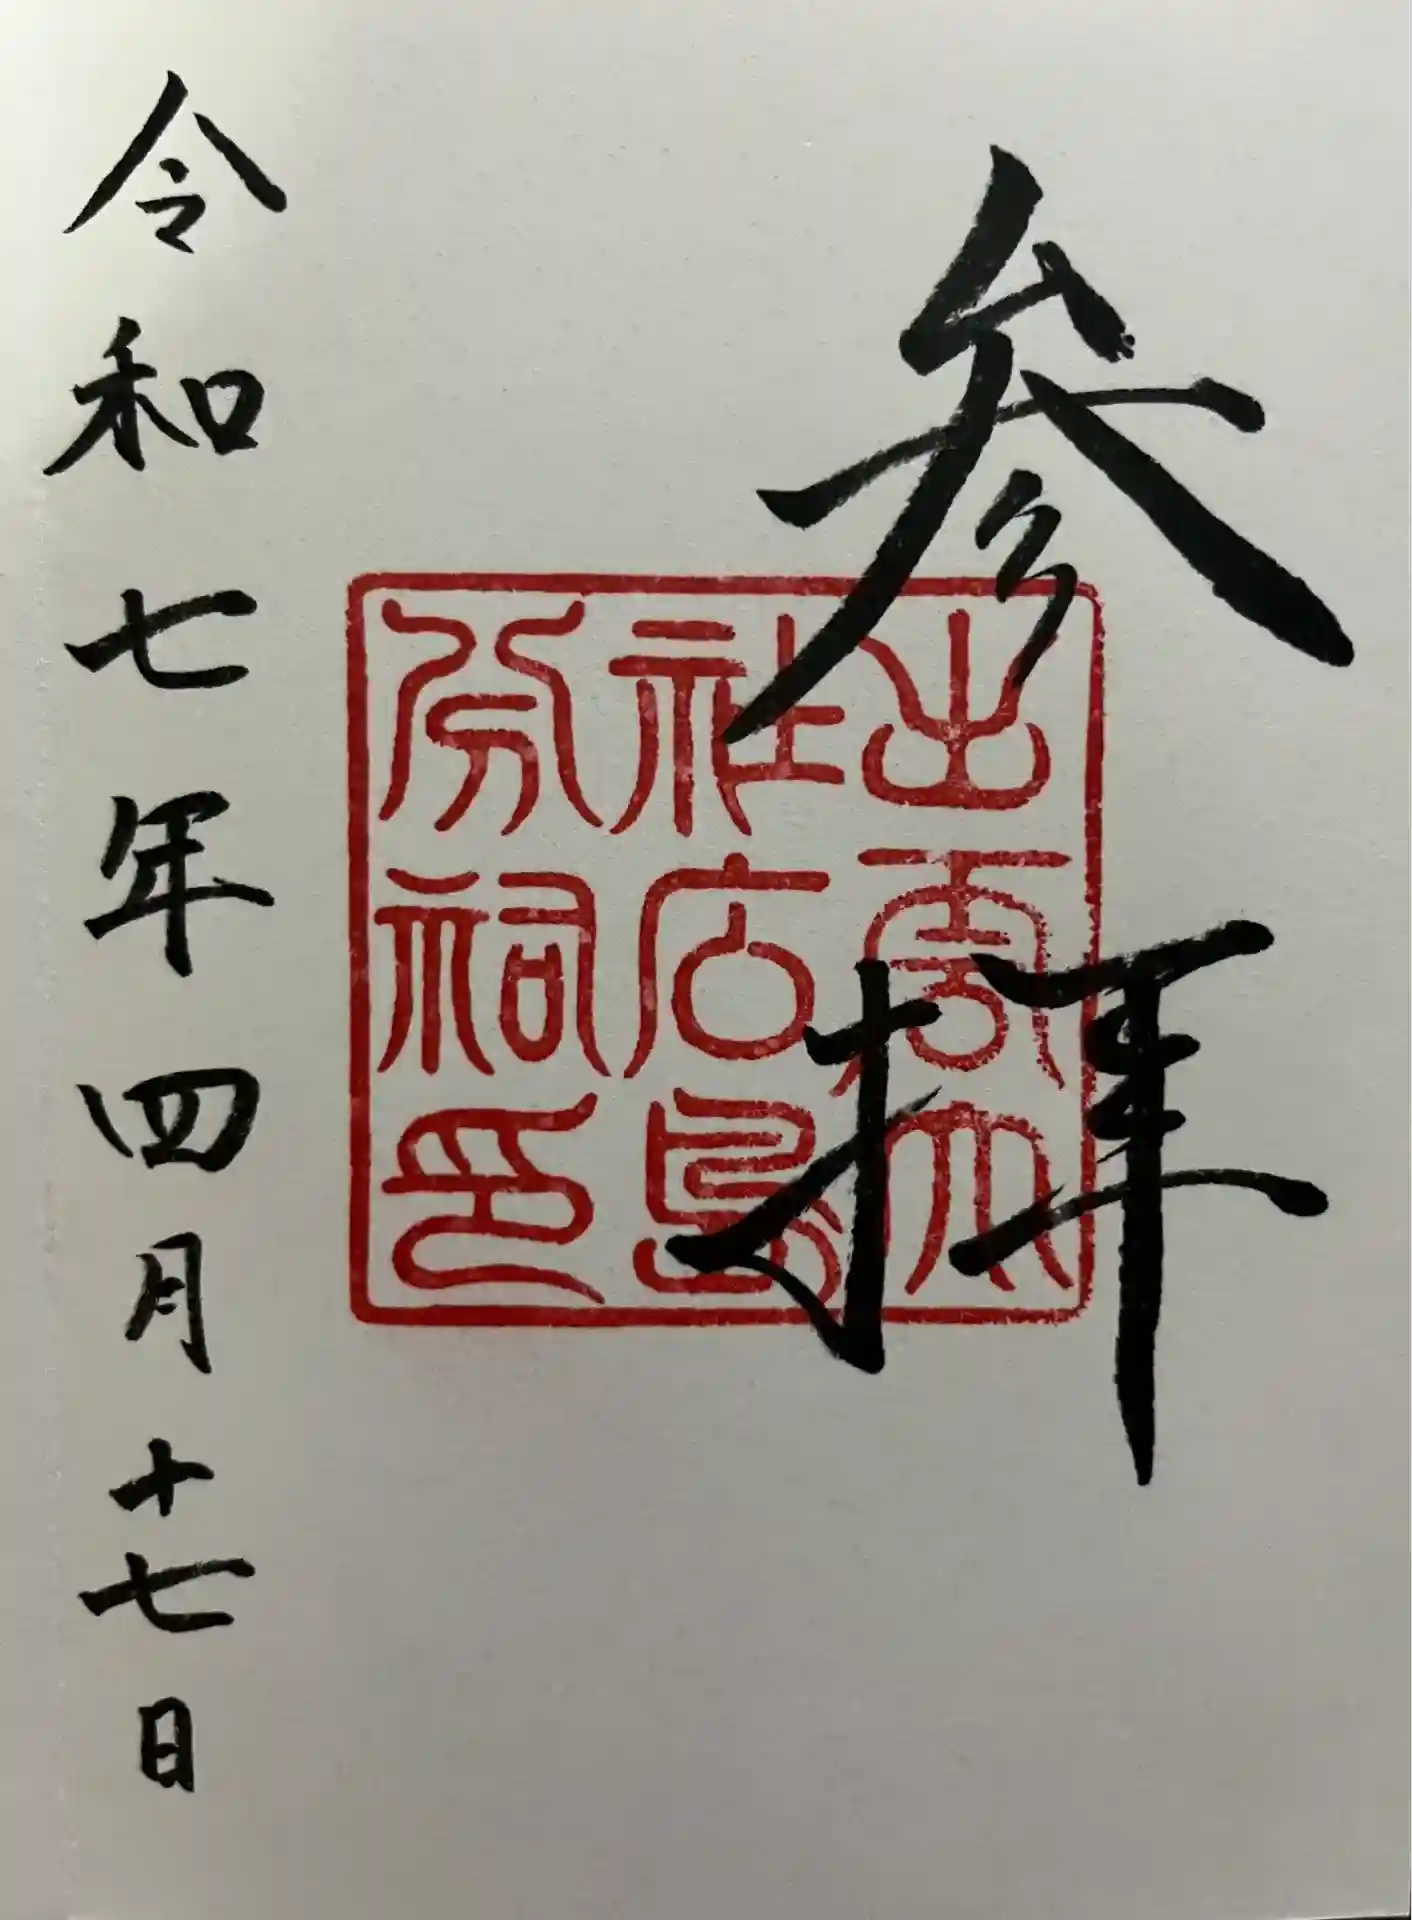 参拝
出雲大
社広島
分祠印
令和七年四月十七日